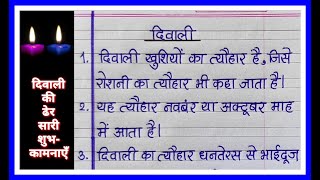 दिवाली
की
ढेर
सारी
शुभ-
कामनाएँ
दिवाली
1. दिवाली खुशियों का त्यौहार है, जिसे
रोशनी का त्यौहार भी कहा जाता है।
2. यह त्यौहार नवबंर या अक्टूबर माह
में आता है।
3. दिवाली का त्यौहार धनतेरस से भाईदूज